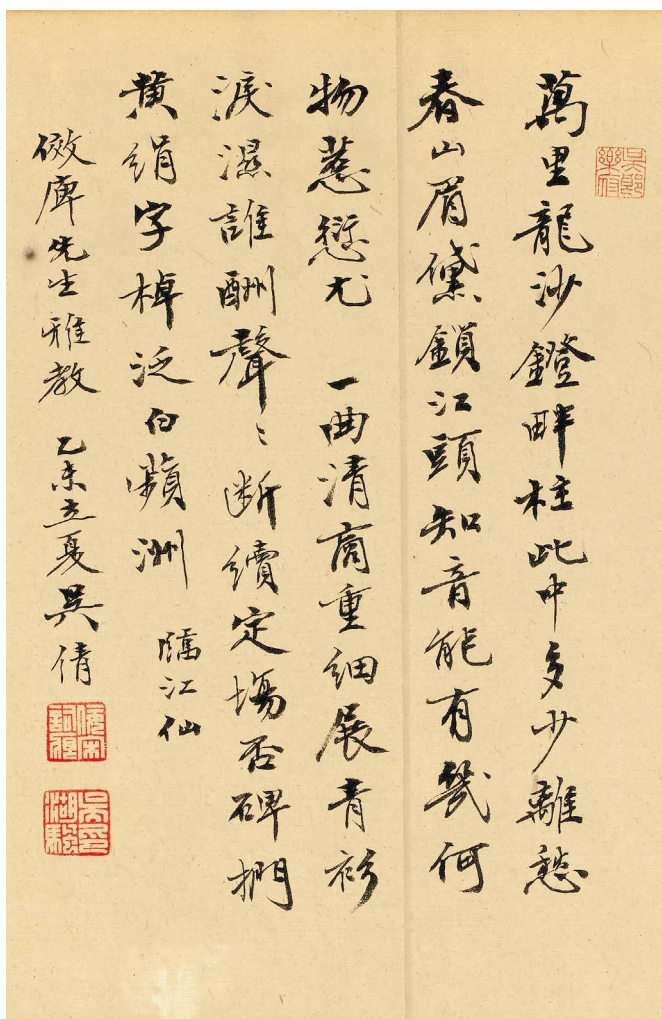 萬里龍沙鐙畔柱此中多少離愁
春山眉黛鎖江頭知音能有幾何
物惹愆尤 一曲清商重細展青衫
淚濕誰酬聲〻斷續定場否碑捫
黃絹字棹泛白蘋洲 臨江仙
傚庳先生雅教 乙未立夏吳倩
吳郎樂府
吳湖颿印